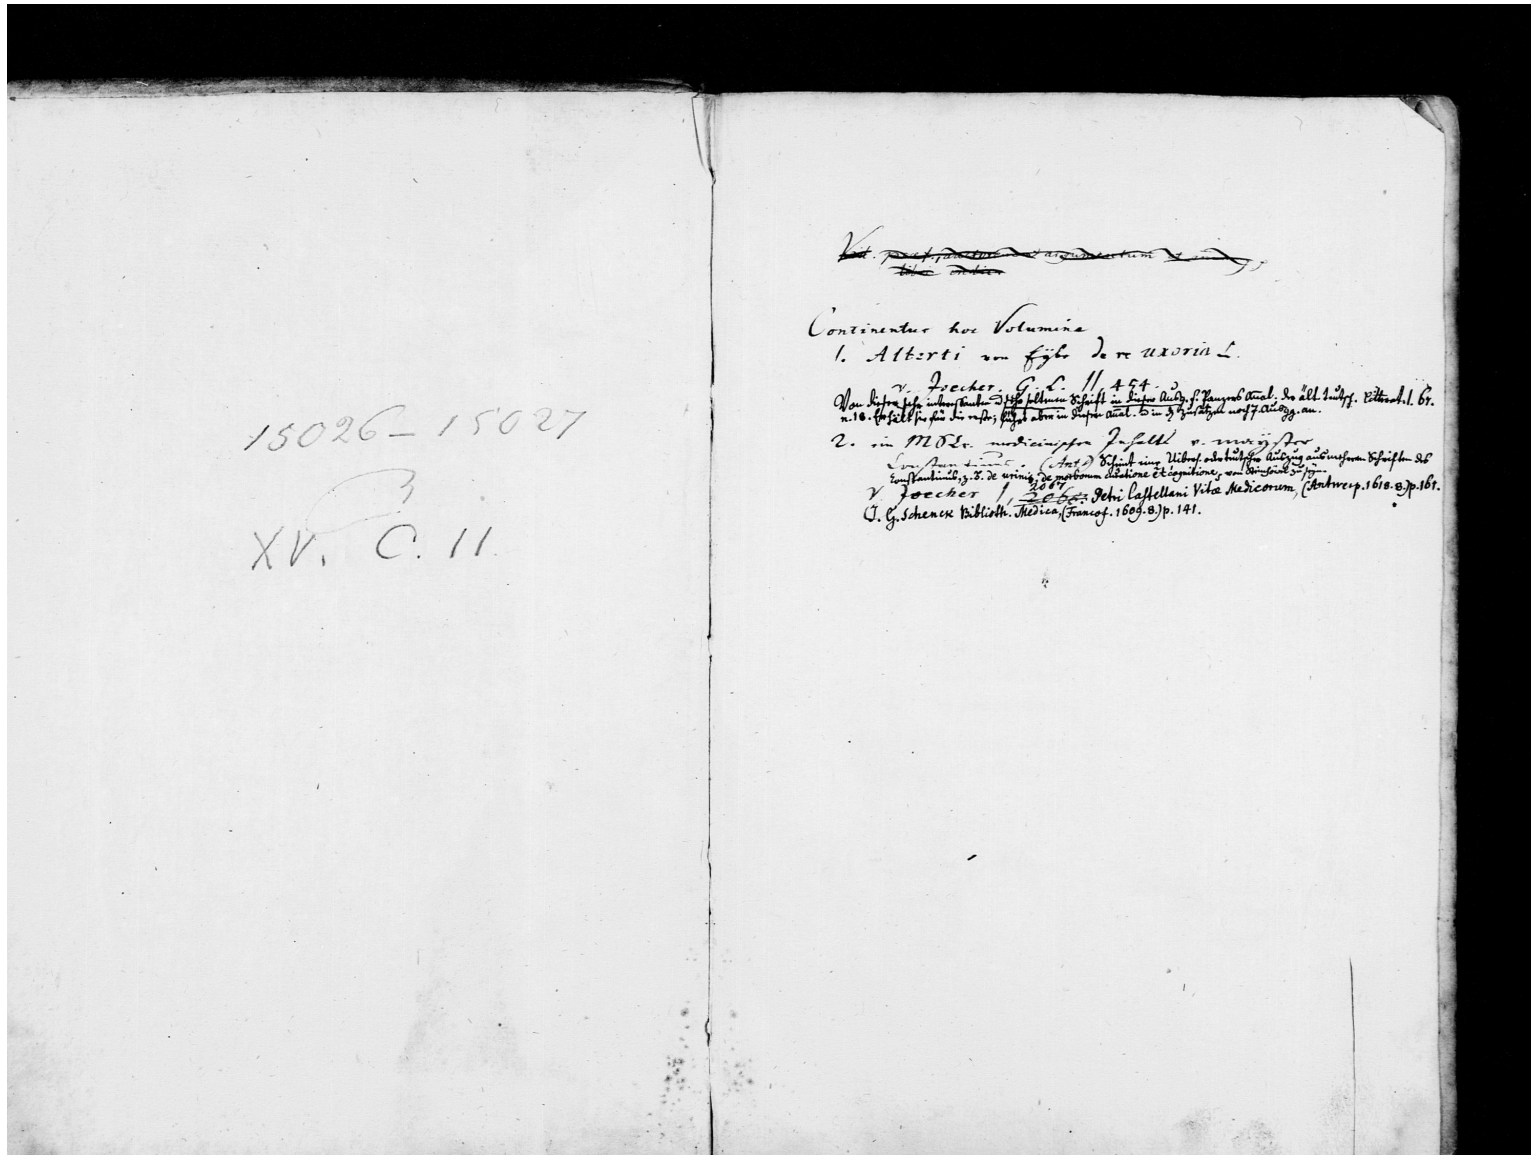 15026 – 15027
XV. C. 11.
Continentur hoc Volumine
1. Alberti von Eÿbe de re uxoria L.
v. Joecher. G. L. II 454.
Von dieser sehr interessanten sehr seltenen Schrift in dieser Ausg. s. Panzers Anal. der ält. teutsch. Litterat. I. 67.
n. 18. Er hält sie für die erste, führt aber in diesen Anal. in Zusätzen noch 7 Ausgg. an.
2. ein MSCr. medicinischen Inhalts v. maÿster
Constantinus. (Ant.) Scheint eine Uibers. oder teutscher Auszug aus mehreren Schriften des
Constantinus, z. B. de urinis, de morborum curatione et cognitione, von
v. Joecher I, 2067 Petri Castellani Vitæ Medicorum, (Antwerp. 1618. 8.) p. 161.
J. G. Schenck Biblioth. Medica, (Francof. 1609. 8.) p. 141.